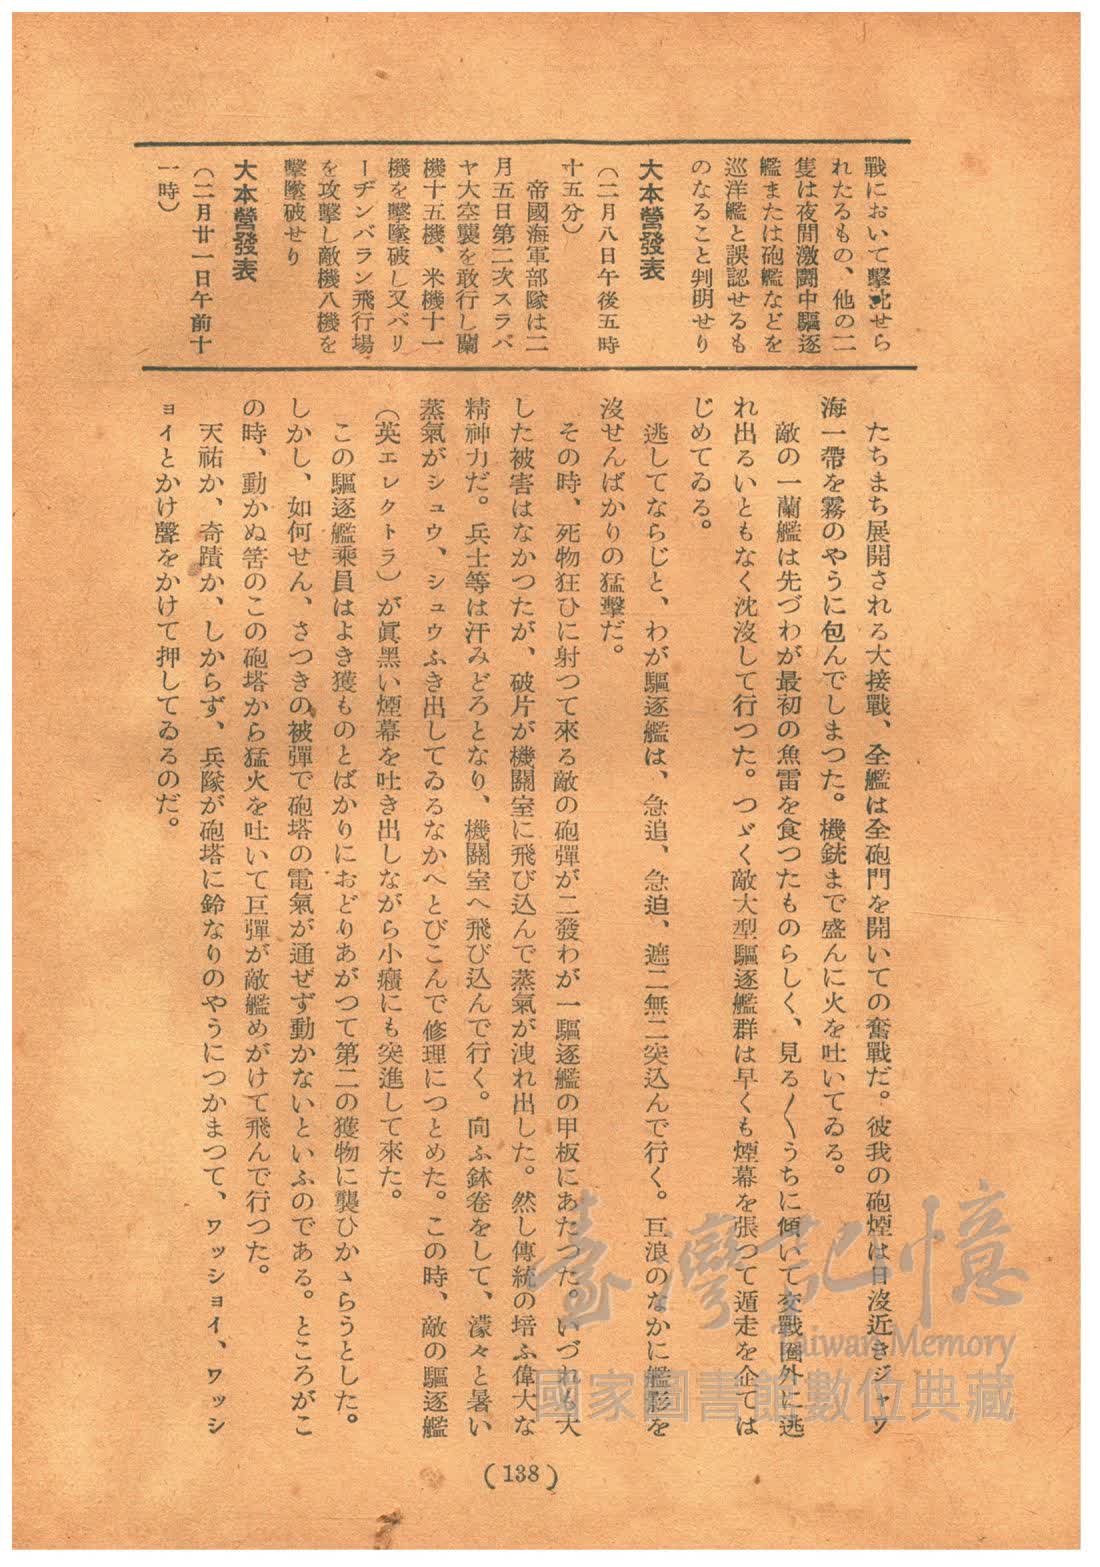 戰において擊沈せら
れたるもの、他の二
隻は夜間激鬪中驅逐
艦または砲艦などを
巡洋艦と誤認せるも
のなること判明せり
大本營發表
(二月八日午後五時
十五分)
帝國海軍部隊は二
月五日第二次スラバ
ヤ大空襲を敢行し蘭
機十五機、米機十一
機を擊墜破し又バリ
ーヂンバラン飛行場
を攻擊し敵機八機を
擊墜破せり
大本營發表
(二月廿一日午前十
一時)
たちまち展開される大接戰、全艦は全砲門を開いての奮戰だ。彼我の砲煙は日沒近きジャワ
海一帶を霧のやうに包んでしまつた。機銃まで盛んに火を吐いてゐる。
敵の一蘭艦は先づわが最初の魚雷を食つたものらしく、見る〳〵うちに傾いて交戰圈外に逃
れ出るいともなく沈沒して行つた。つゞく敵大型驅逐艦群は早くも煙幕を張つて遁走を企ては
じめてゐる。
逃してならじと、わが驅逐艦は、急追、急迫、遮二無二突込んで行く。巨浪のなかに艦影を
沒せんばかりの猛擊だ。
その時、死物狂ひに射つて來る敵の砲彈が二發わが一驅逐艦の甲板にあたつた。いづれも大
した被害はなかつたが、破片が機關室に飛び込んで蒸氣が洩れ出した。然し傳統の培ふ偉大な
精神力だ。兵士等は汗みどろとなり、機關室へ飛び込んで行く。向ふ鉢卷をして、濛々と暑い
蒸氣がシュウ、シュウふき出してゐるなかへとびこんで修理につとめた。この時、敵の驅逐艦
(英エレクトラ)が眞黑い煙幕を吐き出しながら小癪にも突進して來た。
この驅逐艦乘員はよき獲ものとばかりにおどりあがつて第二の獲物に襲ひかゝらうとした。
しかし、如何せん、さつきの被彈で砲塔の電氣が通ぜず動かないといふのである。ところがこ
の時、動かぬ筈のこの砲塔から猛火を吐いて巨彈が敵艦めがけて飛んで行つた。
天祐か、奇蹟か、しからず、兵隊が砲塔に鈴なりのやうにつかまつて、ワッショイ、ワッシ
ョイとかけ聲をかけて押してゐるのだ。
(138)
臺灣記憶
Taiwan Memory
國家圖書館數位典藏